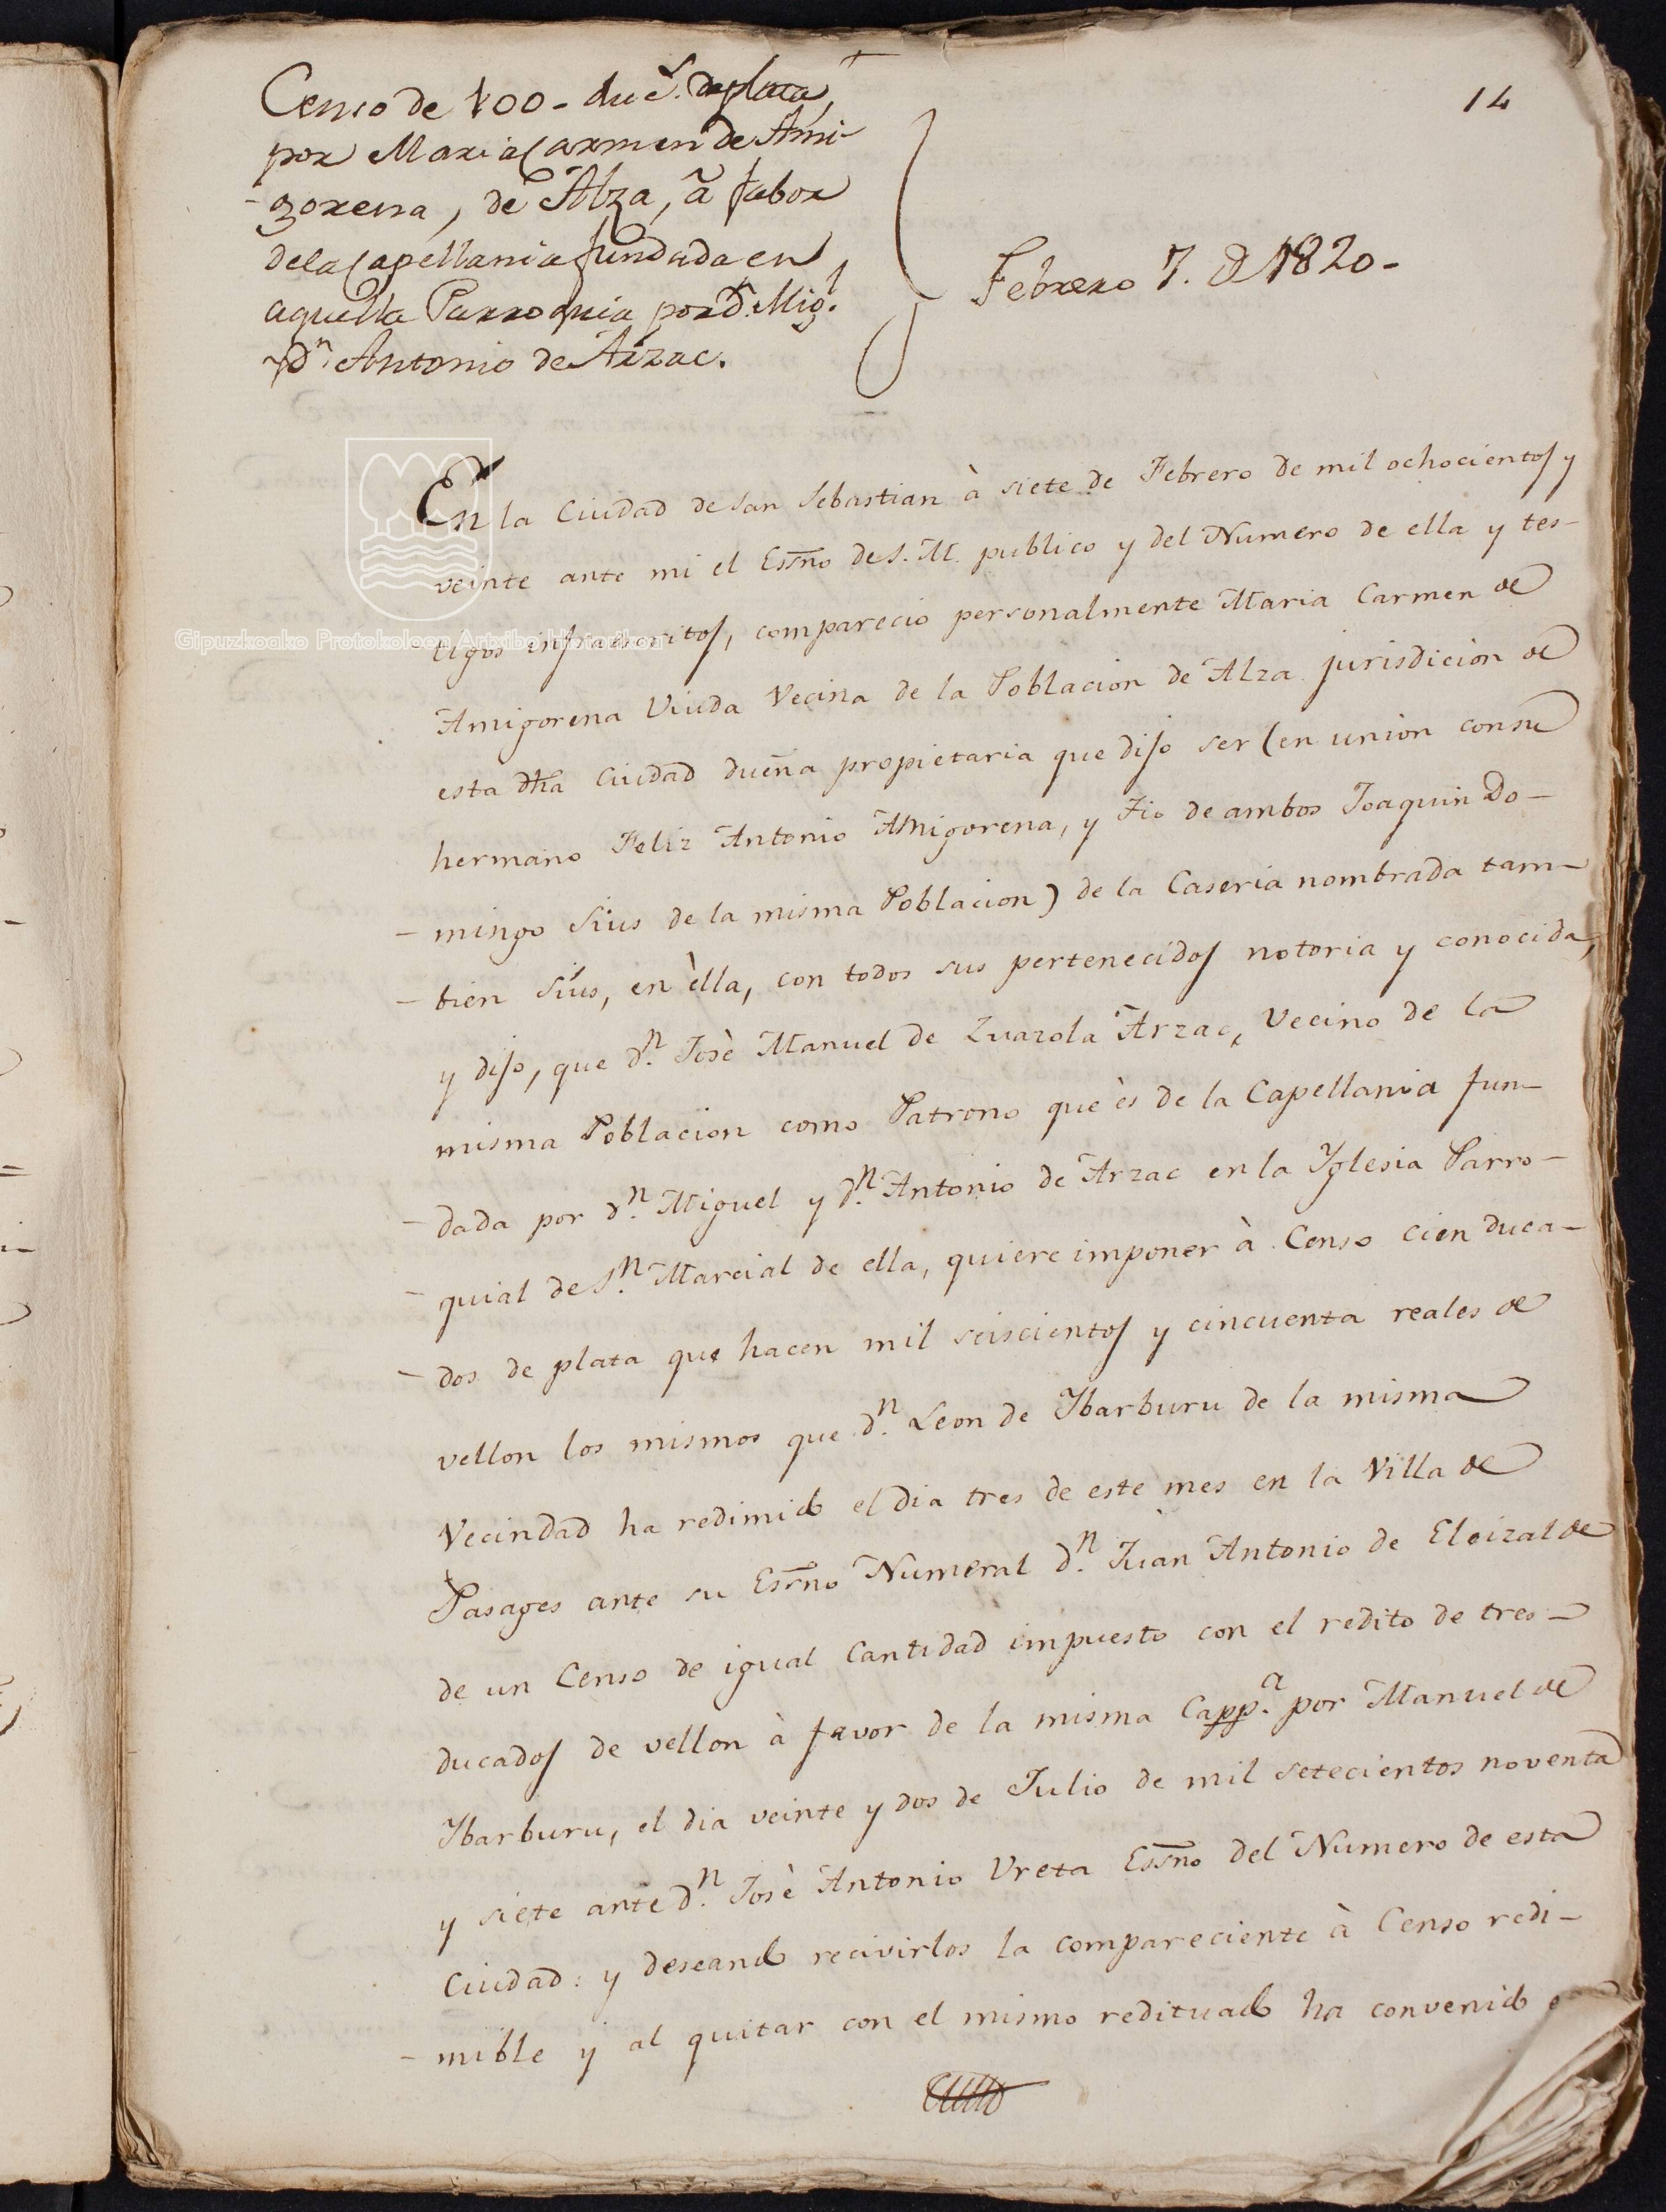 14
Censo de 100 - duc.s de plata,
por Maria Carmen de Ami-
- gorena, de Alza, à fabor
de la Capellania fundada en
aquella Parroquia por D.n Mig.l
y D.n Antonio de Arzac.
Febrero 7. de 1820 -
En la Ciudad de San Sebastian à siete de Febrero de mil ochocientos y
veinte ante mi el Esno de S. M. publico y del Numero de ella y tes-
- tigos infraescritos, compareció personalmente Maria Carmen de
Amigorena Viuda Vecina de la Poblacion de Alza jurisdicion de
esta dha Ciudad dueña propietaria que dijo ser (en union con su
hermano Feliz Antonio Amigorena, y Tio de ambos Joaquin Do-
- mingo Sius de la misma Poblacion) de la Caseria nombrada tam-
- bien Sius, en èlla, con todos sus pertenecidos notoria y conocida,
y dijo, que d.n Josè Manuel de Zuazola Arzac, Vecino de la
misma Poblacion como Patrono que ès de la Capellania fun-
- dada por d.n Miguel y d.n Antonio de Arzac en la Yglesia Parro-
- quial de S.n Marcial de ella, quiere imponer à Censo cien duca-
- dos de plata que hacen mil seiscientos y cincuenta reales de
vellon los mismos que d.n Leon de Ybarburu de la misma
Vecindad ha redimido el dia tres de este mes en la Villa de
Pasages ante su Esno Numeral d.n Juan Antonio de Eleizalde
de un Censo de igual Cantidad impuesto con el redito de tres
ducados de vellon à favor de la misma Capp.a por Manuel de
Ybarburu, el dia veinte y dos de Julio de mil setecientos noventa
y siete ante d.n Josè Antonio Ureta Esno del Numero de esta
Ciudad: y deseando recivirlos la compareciente à Censo redi-
- mible y al quitar con el mismo redituado ha convenido
Gipuzkoako Protokoloen Artxibo Historikoa